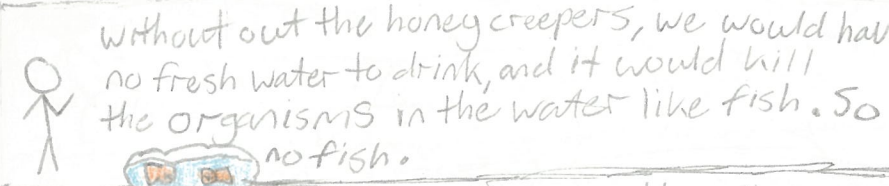 without out the honeycreepers, we would hav
no fresh water to drink, and it would kill
the organisms in the water like fish. So
no fish.